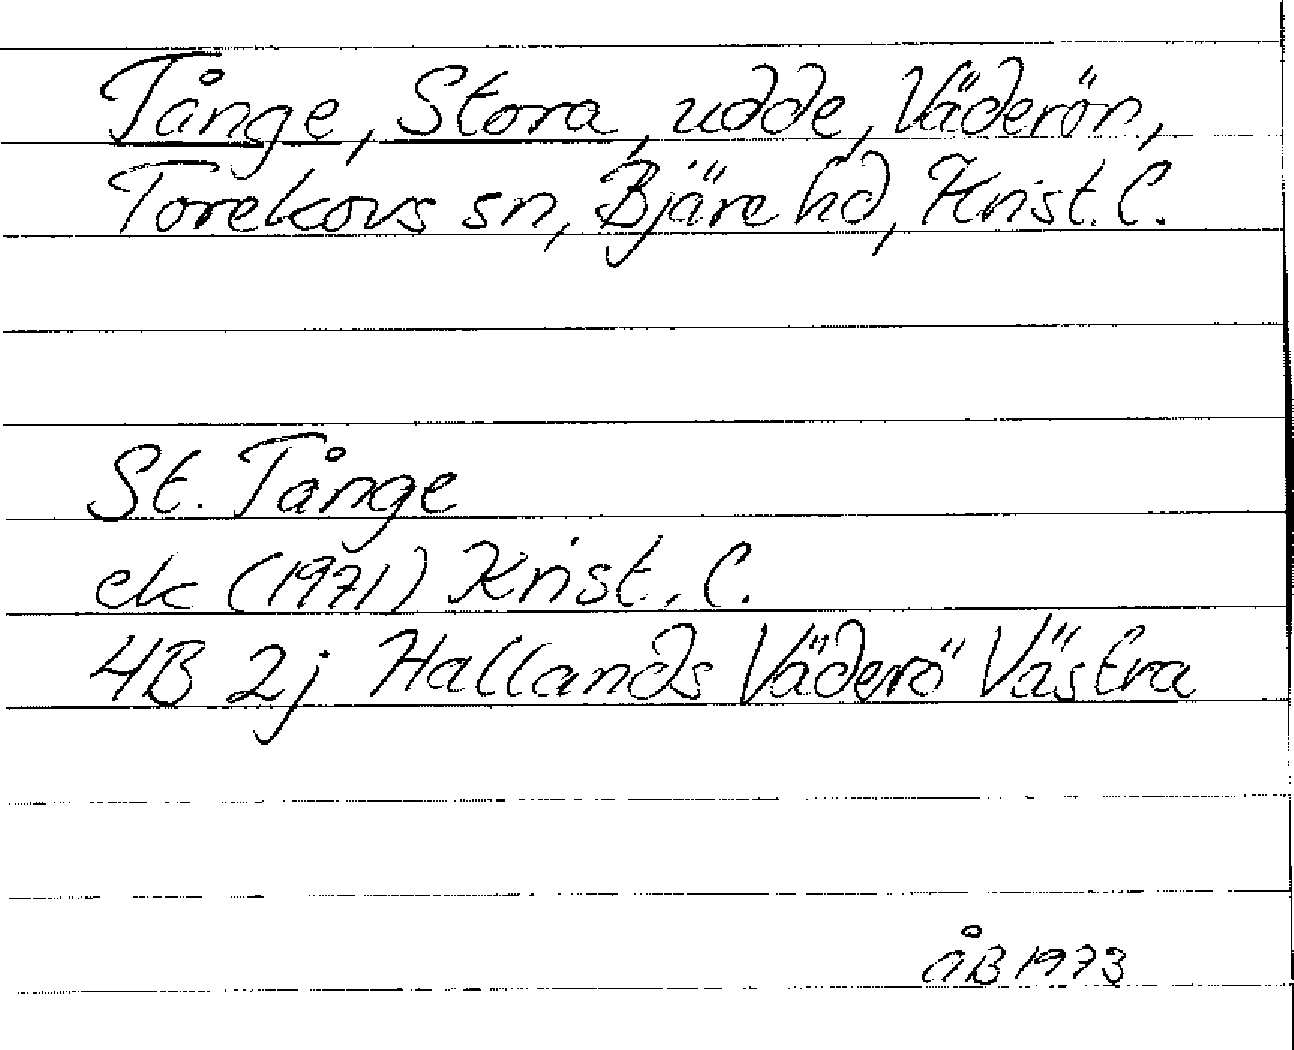 Tånge, Stora, udde, Väderön,
Torekovs sn, Bjäre hd, Krist. C.
St. Tånge
ek (1971) Krist. C.
4B 2j Hallands Väderö Västra
ÅB 1973